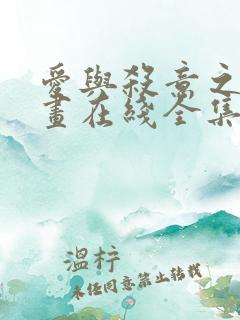 愛與殺意之
畫在綫全集
溫梓
未经同意禁止转载